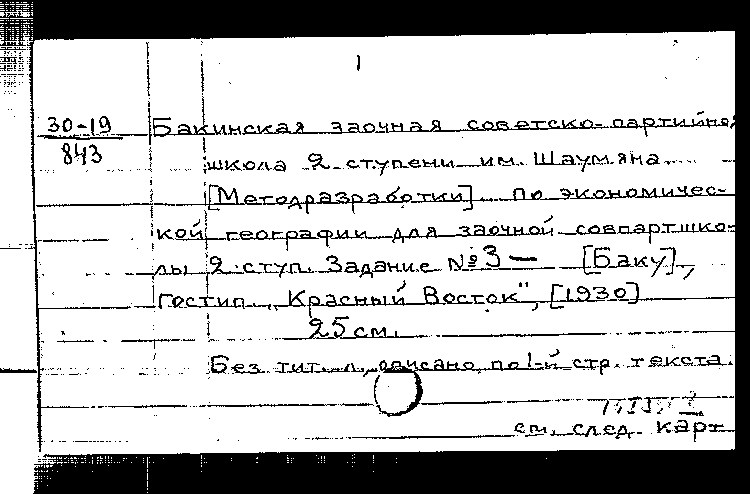 1
30-19
843
Бакинская заочная советско-партийная
школа 2 ступени им. Шаумяна
[Методразработки] по экономичес-
кой географии для заочной совпартшко-
лы 2 ступ. Задание №3 — [Баку],
Гостип. „Красный Восток", [1930]
25 см.
Без тит. л., описано по 1-й стр. текста.
см. след. карт